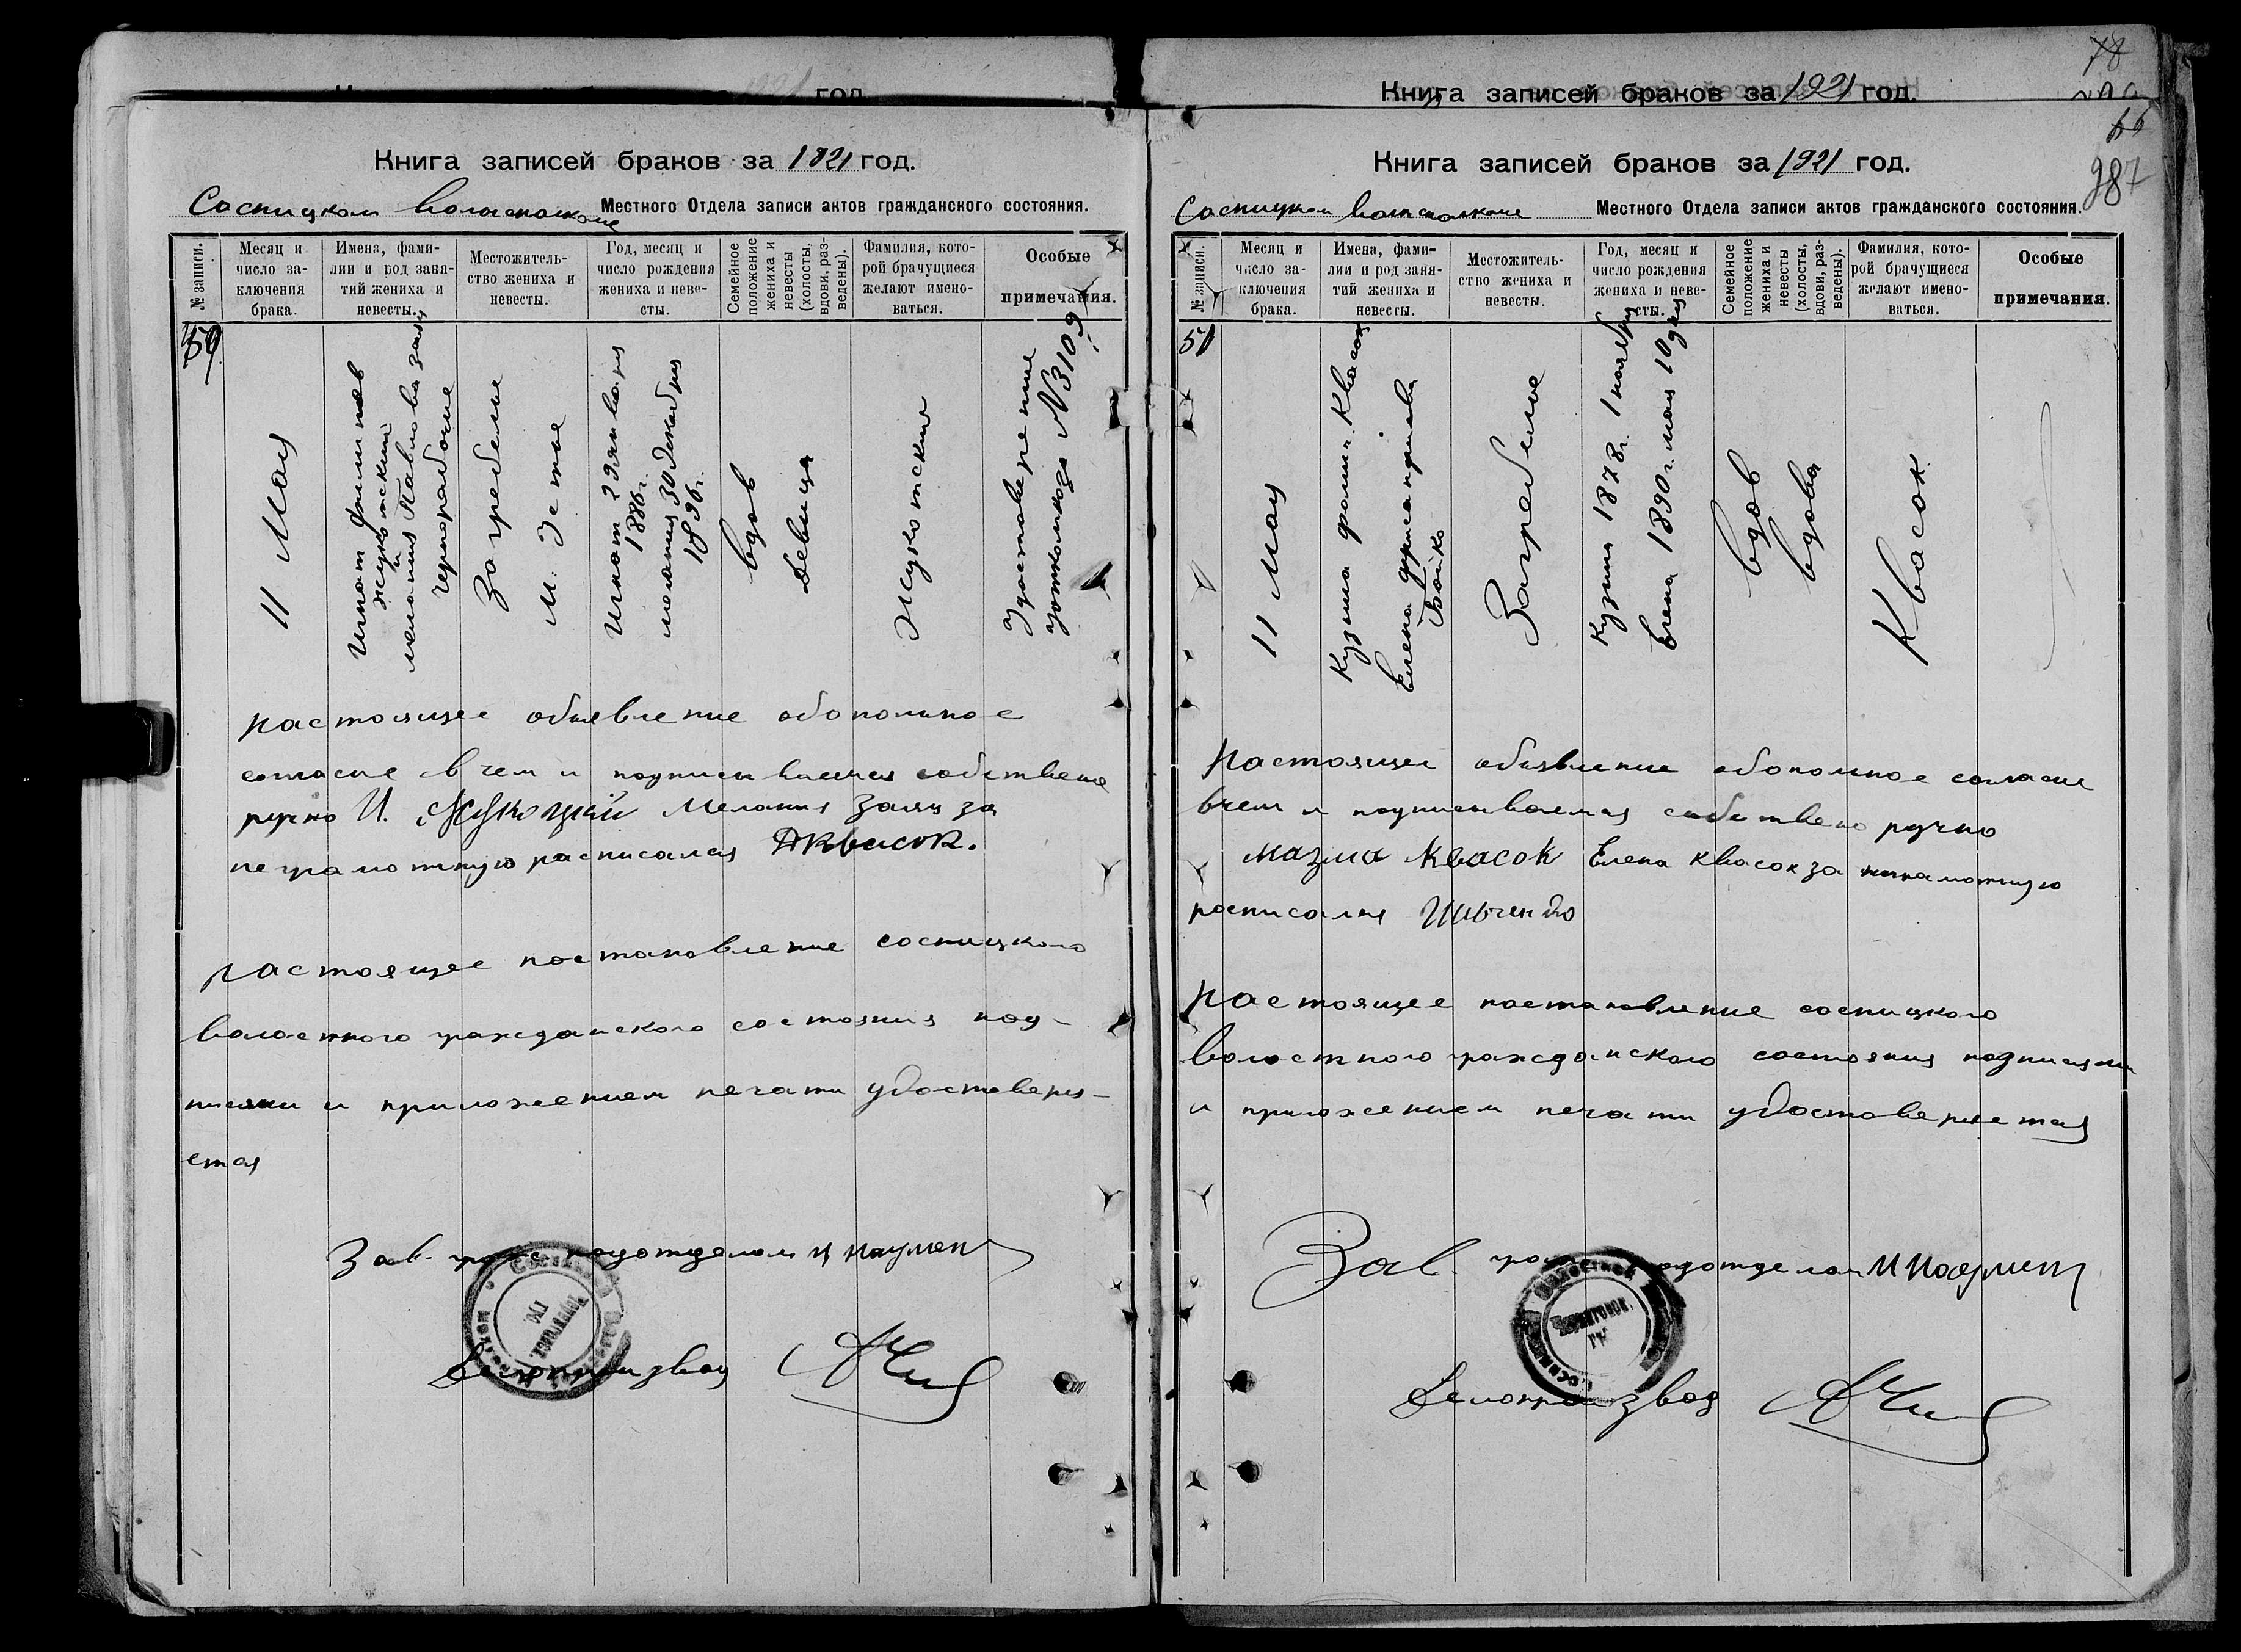 Книга записей браков за 1921 год.
78
66
387
Книга записей браков за 1921 год.
Сосницком волисполкоме Местного Отдела записи актов гражданского состояния.
№ записи.
Месяц и число заключения брака.
Имена, фамилии и род занятий жениха и невесты.
Местожительство жениха и невесты.
Год, месяц и число рождения жениха и невесты.
Семейное положение жениха и невесты (холосты, вдови, разведены).
Фамилия, которой брачущиеся желают именоваться.
Особые примечания.
50
11 Мая
Игнат
Жукотский
и
мелания Павлова Заяц
Чернорабочие
Загребелье
М. Устье
Игнат 29 января
1886 г.
мелания 30 декабря
1896 г.
вдов
девица
Жукотские
Удостоверение
№ 3109
настоящее обявление обополное
согласие в чем и подписываемся собствено
ручно И. Жукоцкий Мелания Заяц за
неграмотную расписался АКвасок.
настоящее постановление сосницкого
волостного гражданского состояния под-
писями и приложением печати удостоверя-
ется
Зав. подотделом И Науменко
Делопроизвод
Книга записей браков за 1921 год.
Сосницком волисполкоме Местного Отдела записи актов гражданского состояния.
№ записи.
Месяц и число заключения брака.
Имена, фамилии и род занятий жениха и невесты.
Местожительство жениха и невесты.
Год, месяц и число рождения жениха и невесты.
Семейное положение жениха и невесты (холосты, вдови, разведены).
Фамилия, которой брачущиеся желают именоваться.
Особые примечания.
51
11 Мая
Кузьма фомич Квасок
Елена
Бойко
Загребелье
Кузьма 1878 г. 1 ноября
Елена 1890 г. мая 10 дня
вдов
вдова
Квасок
Настоящее обявление обополное согласие
вчем и подписываемся собствено ручно
Казма Квасок Елена Квасок за неграмотную
расписался
Настоящее постановление сосницкого
волостного гражданского состояния подписями
и приложением печати удостоверяется
Зав. подотделом И Науменко
Делопроизвод